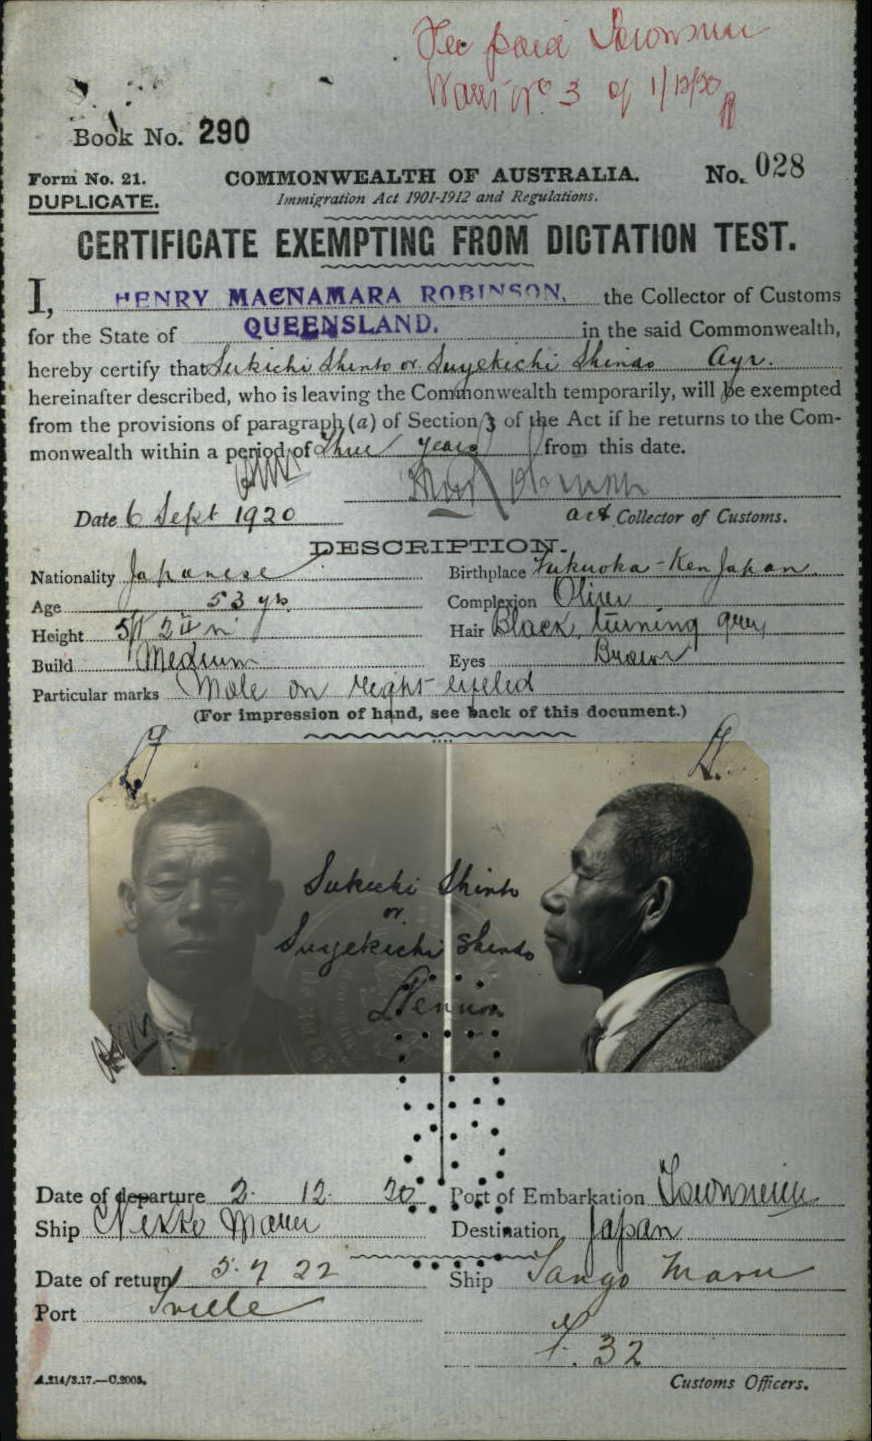 Fee paid Townsville
Warr No 3 of 1/12/20
Book No. 290
Form No. 21.
COMMONWEALTH OF AUSTRALIA.
No. 028
DUPLICATE.
Immigration Act 1901-1912 and Regulations.
CERTIFICATE EXEMPTING FROM DICTATION TEST.
I, HENRY MACNAMARA ROBINSON, the Collector of Customs
for the State of QUEENSLAND. in the said Commonwealth,
hereby certify that Sukichi Shinto or Suyekichi Shindo Ayr.
hereinafter described, who is leaving the Commonwealth temporarily, will be exempted
from the provisions of paragraph (a) of Section 3 of the Act if he returns to the Com-
monwealth within a period of Three years from this date.
Date 6 Sept 1920
act Collector of Customs.
DESCRIPTION.
Nationality Japanese
Birthplace Fukuoka-Ken Japan
Age 53 yrs
Complexion Olive
Height 5ft 2 in
Hair Black, turning grey
Build Medium
Eyes Brown
Particular marks Mole on right eyelid
(For impression of hand, see back of this document.)
Sukichi Shinto
or
Suyekichi Shindo
Date of departure 2. 12. 20
Port of Embarkation Townsville
Ship Nikko Maru
Destination Japan
Date of return 5. 7 22
Ship Tango Maru
Port Tville
32
A.214/3.17.—C.2005.
Customs Officers.